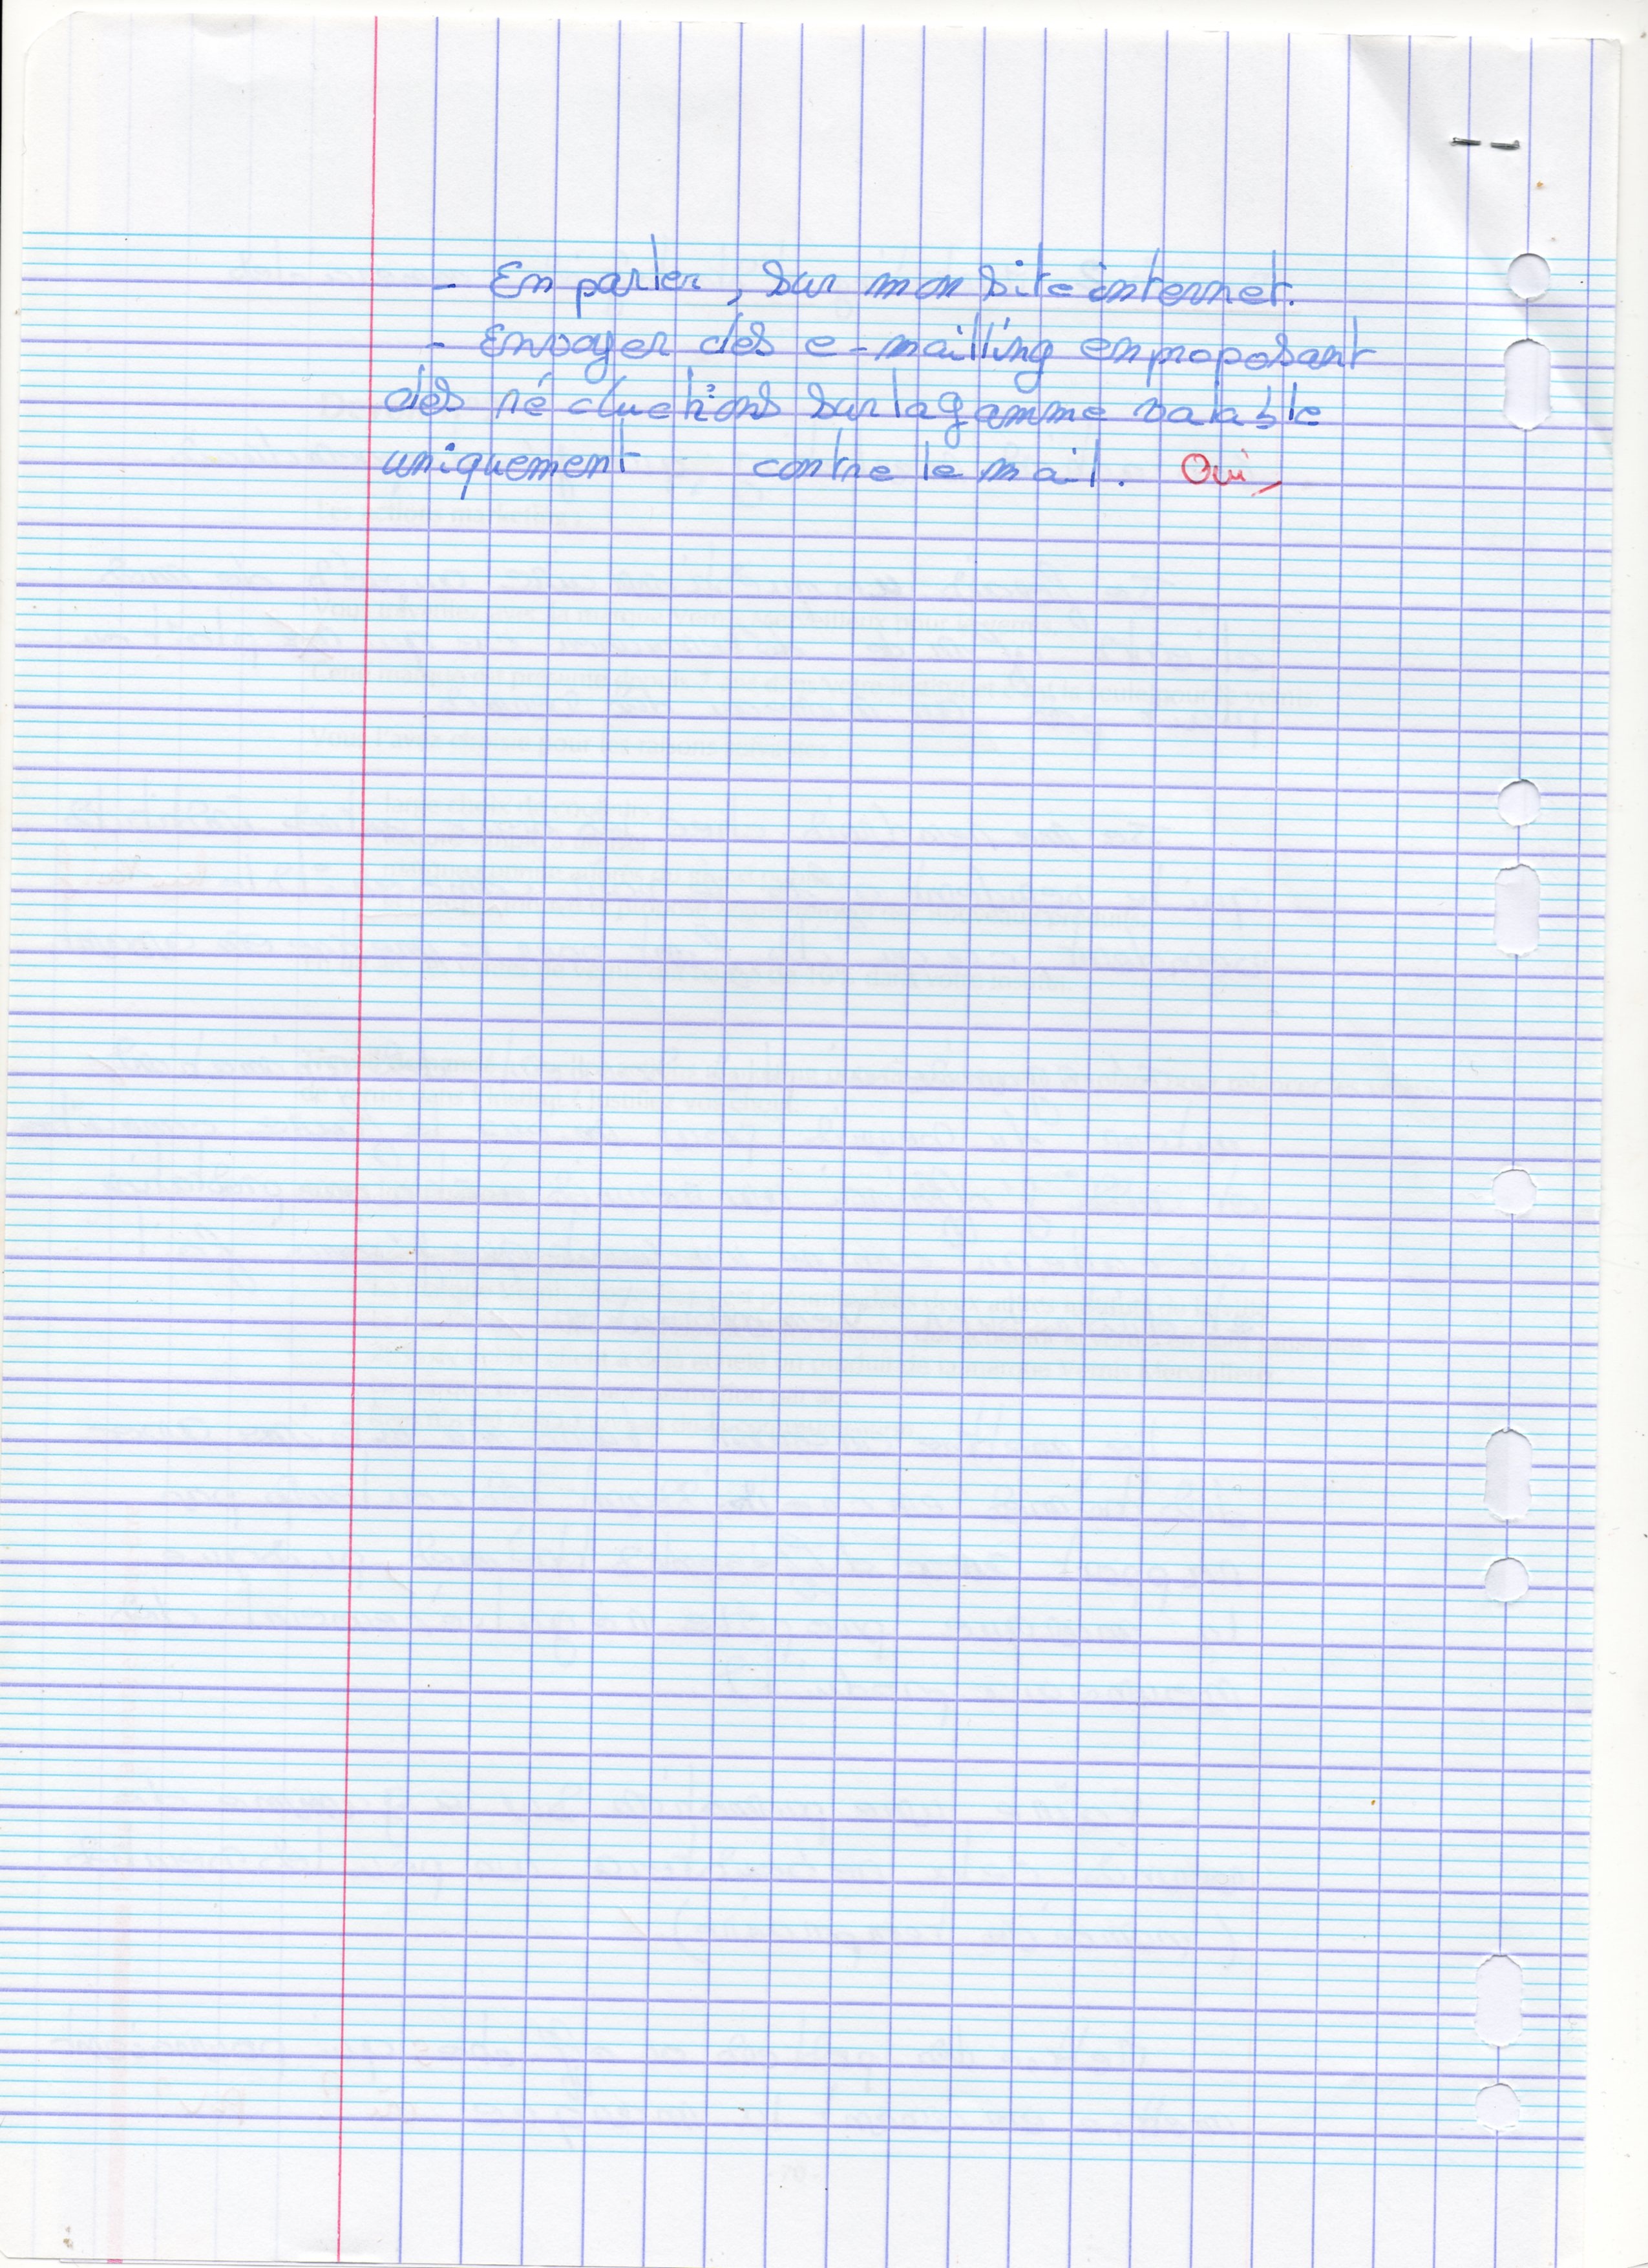 - En parler, sur mon site internet.
- Envoyer des e-mailling en proposant
des réductions sur la gamme valable
uniquement contre le mail. Oui